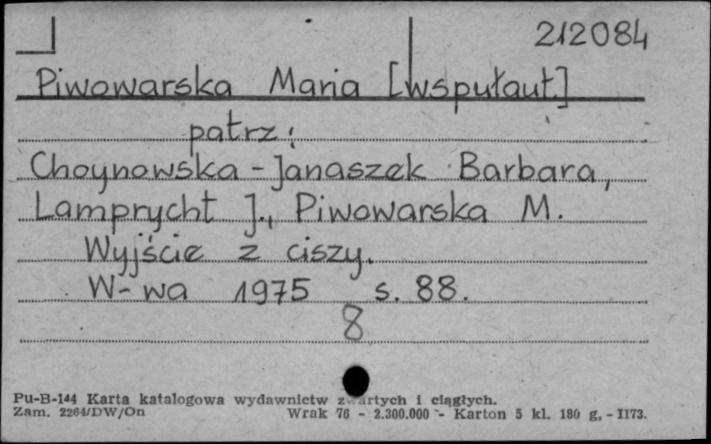 212084
Piwowarska Maria [wspułaut.]
patrz:
Choynowska-Janaszek Barbara,
Lamprycht J., Piwowarska M.
Wyjście z ciszy.
W-wa 1975 s. 88.
8
Pu-B-144 Karta katalogowa wydawnictw zwartych i ciągłych.
Zam. 2264/DW/On Wrak 76 - 2.300.000 - Karton 5 kl. 180 g. - I173.